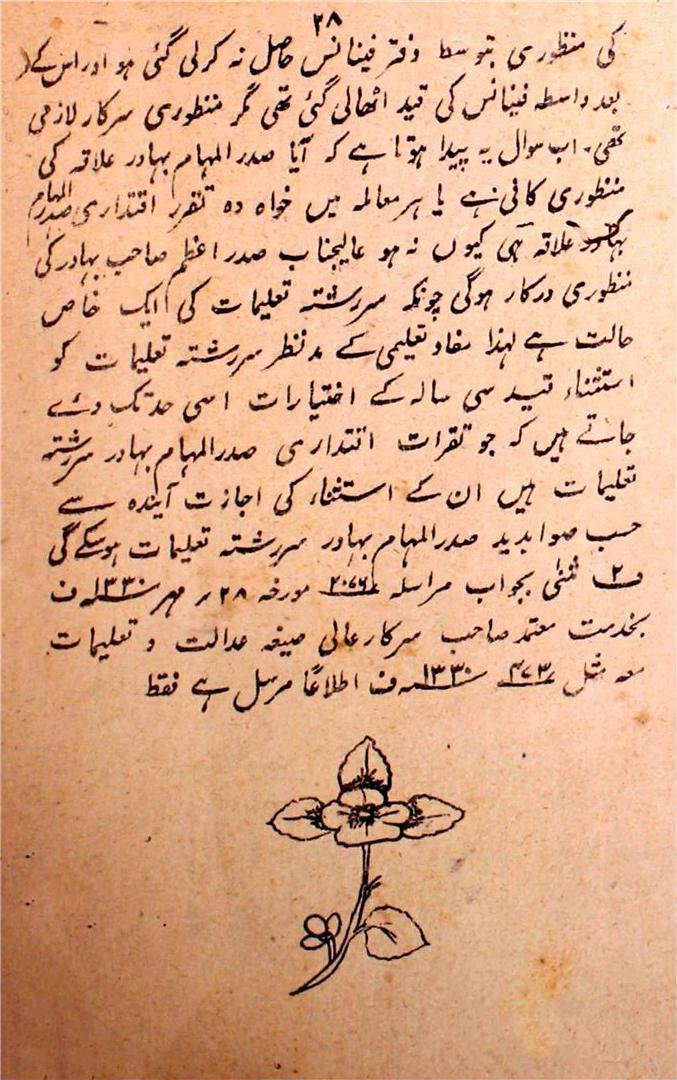 ۲۸
کی منظوری بتوسط دفتر فینانس حاصل نہ کرلی گئی ہو اور اس کے
بعد واسطہ فینانس کی قید اٹھالی گئی تھی مگر منظوری سرکار لازمی
تھی۔ اب سوال یہ پیدا ہوتا ہے کہ آیا صدر المہام بہادر علاقہ کی
منظوری کافی ہے یا ہر معاملہ میں خواہ وہ تقرر اقتداری صدر المہام
بہادر علاقہ ہی کیوں نہ ہو عالیجناب صدر اعظم صاحب بہادر کی
منظوری درکار ہوگی چونکہ سررشتہ تعلیمات کی ایک خاص
حالت ہے لہذا مفاد تعلیمی کے مدنظر سررشتہ تعلیمات کو
استثناء قید سی سالہ کے اختیارات اسی حد تک دئے
جاتے ہیں کہ جو تقررات اقتداری صدر المہام بہادر سررشتہ
تعلیمات ہیں ان کے استثناء کی اجازت آیندہ سے
حسب صوابدید صدر المہام بہادر سررشتہ تعلیمات ہوسکے گی
ف۲ مثنیٰ بجواب مراسلہ ۲۰۷۶ مورخہ ۲۸ مہر ۱۳۳۰ ف
بخدمت معتمد صاحب سرکار عالی صیغہ عدالت و تعلیمات
معہ مثل ۴۷۳ ۱۳۳۰ ف اطلاعاً مرسل ہے فقط